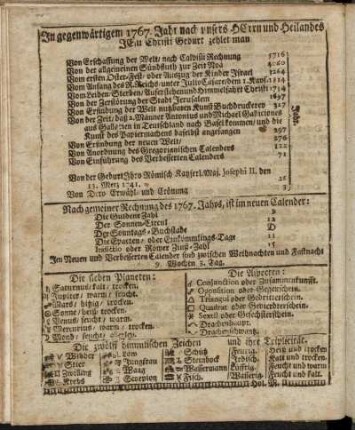 In gegenwärtigem 1767. Jahr nach unsers HErrn und Heilandes
JEsu Christi Geburt zehlet man
Von Erschaffung der Welt, nach Calvisii Rechnung 5716
Von der allgemeinen Sündfluth zur Zeit Noä 4060
Vom ersten Oster-Fest, oder Auszug der Kinder Israel 3264
Vom Anfang des R. Reichs, unter Julio Cäsare, den
Vom Leiden, Sterben, Auferstehung und Himmelfahrt Christi 1734
Von der Zerstörung der Stadt Jerusalem 1697
Von Erfindung der Welt nutzbaren Kunst Buchdruckerey 327
Von der Zeit, daß 2. Männer Antonius und Michael Galicionus
aus Gallizen in Deutschland nach Basel kommen, und die
Kunst des Papiermachens daselbst angefangen 297
Von Erfindung der neuen Welt 276
Von Anordnung des Gregorianischen Calenders
Von Einführung des Verbesserten Calenders
Jahr
Von der Geburt Ihro Römisch Kayserl. Maj. Josephi II. den
13. Merz 1741.
Von Dero Erwähl- und Crönung
Nach gemeiner Rechnung des 1767. Jahrs, ist im neuen Calender:
Die Guldene Zahl
Der Sonnen-Circul 12
Der Sonntags-Buchstabe D
Die Epacten, oder Einkommlings-Tage
Indictio oder Römer Zins-Zahl 15
Im Neuen und Verbesserten Calender sind zwischen Weihnachten und Faßnacht
9. Wochen 3. Tag.
Die sieben Planeten:
♄ Saturnus/ kalt/ trocken.
♃ Jupiter/ warm/ feucht.
♂ Mars/ hitzig/ trocken.
☉ Sonne/ heiß/ trocken.
♀ Venus/ feucht/ warm.
☿ Mercurius/ warm/ trocken.
☽ Mond/ feucht/
Die Aspecten:
☌ Conjunction oder Zusammenkunft.
☍ Opposition oder Gegenschein.
△ Triangul oder Gedritterschein.
□ Quadrat oder Gevierdterschein.
⚹ Sextil oder Gesechsterschein.
☊ Drachenhaupt.
☋ Drachenschwantz.
Die zwölf himmlischen Zeichen und ihre Triplicität.
♈ Widder ♌ Löw ♐ Schütz Feurig. Heiß und trocken
♉ Stier ♍ Jungfrau ♑ Steinbock Irdisch. Kalt und trocken.
♊ Zwilling ♎ Waag ♒ Wassermann Luftig. Feucht und warm
♋ Krebs ♏ Scorpion ♓ Fisch. Wässerig. Feucht und kalt